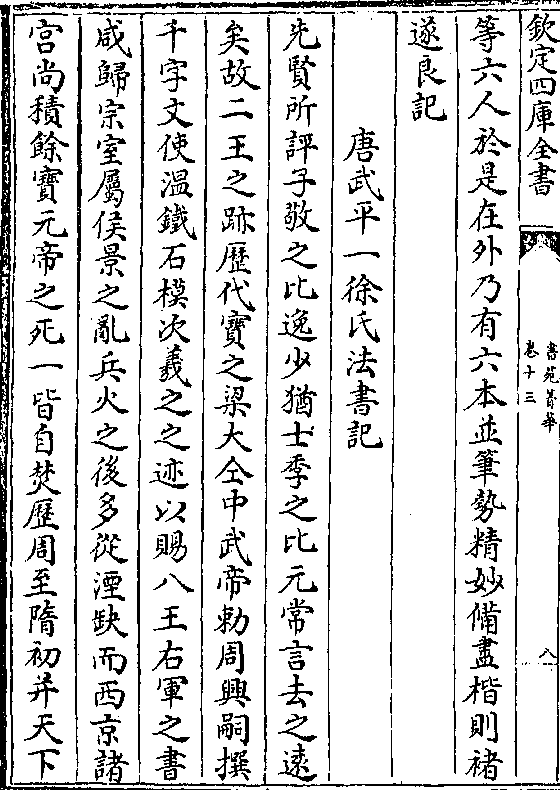 欽定四庫全書
書苑菁華
卷十三
八
等六人於是在外乃有六本並筆勢精妙備盡楷則褚
遂良記
唐武平一徐氏法書記
先賢所評子敬之比逸少猶士季之比元常言去之遠
矣故二王之跡歷代寶之梁大仝中武帝勅周興嗣撰
千字文使溫鐵石模次羲之之迹以賜八王右軍之書
咸歸宗室屬侯景之亂兵火之後多從湮缺而西京諸
宮尚積餘寶元帝之死一皆自焚歷周至隋初并天下